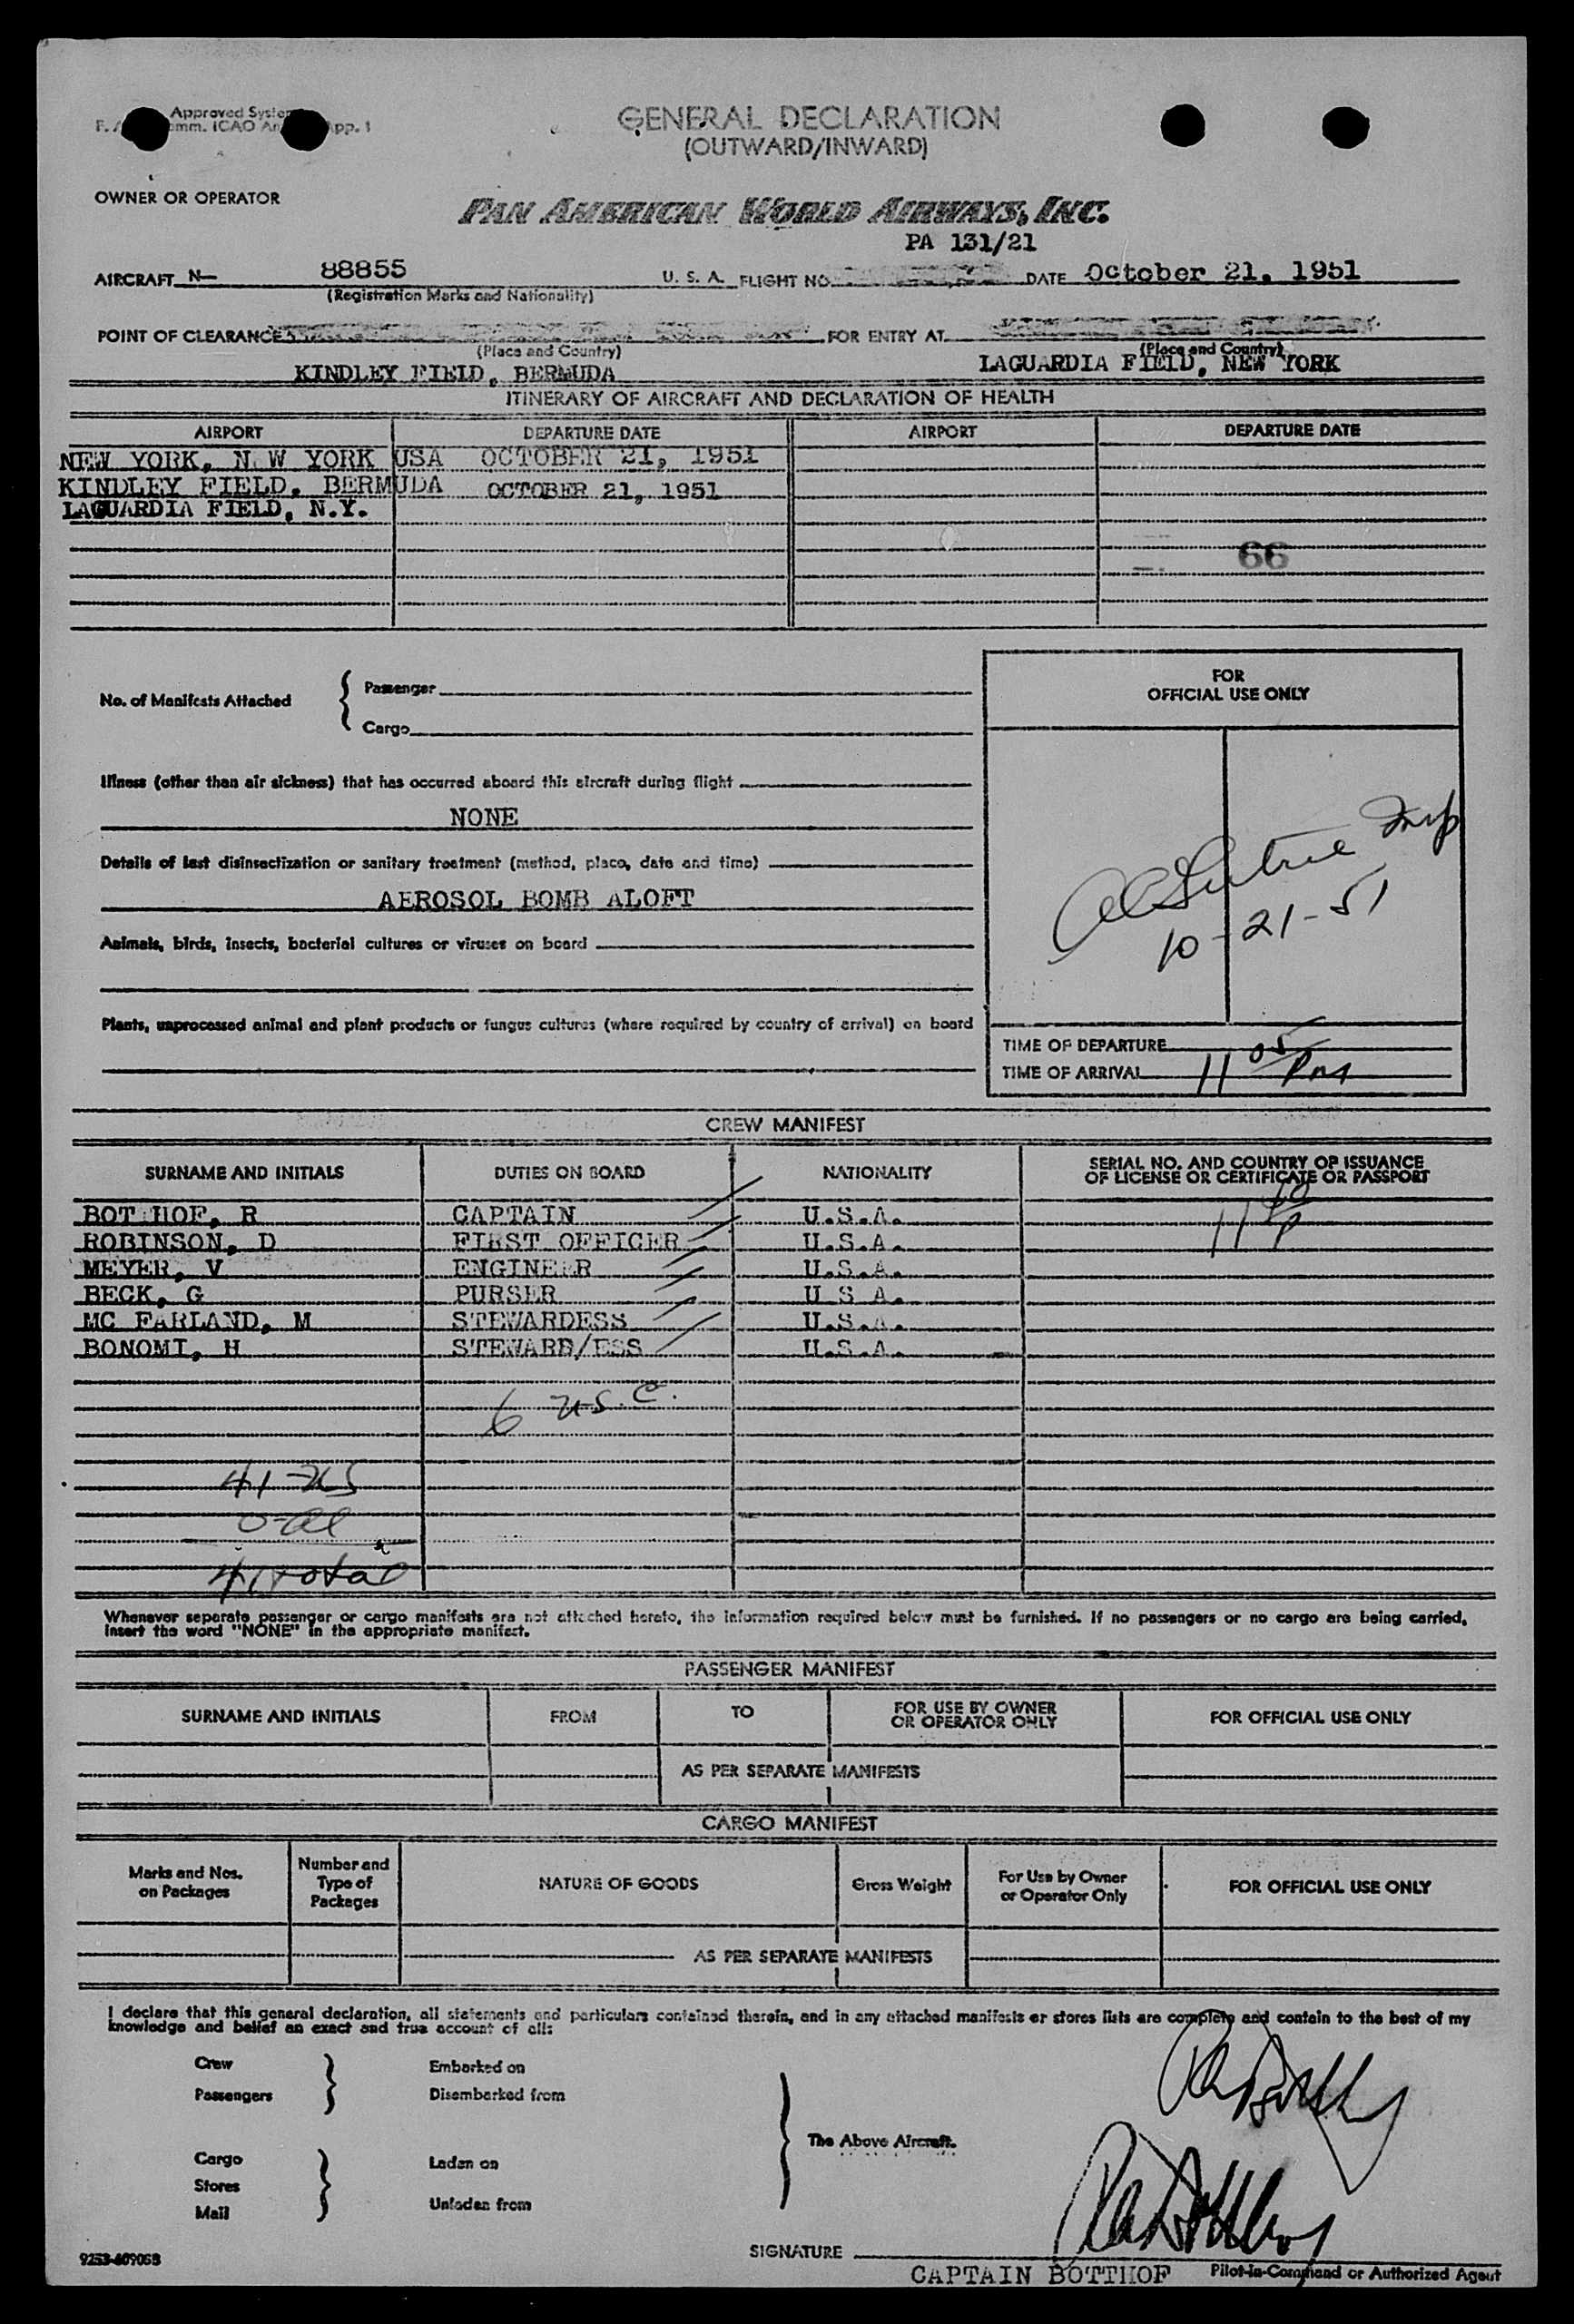 Approved System
GENERAL DECLARATION
(OUTWARD/INWARD)
OWNER OR OPERATOR
PAN AMERICAN WORLD AIRWAYS, INC.
PA 131/21
AIRCRAFT N— 88855 U. S. A. FLIGHT NO. DATE October 21, 1951
(Registration Marks and Nationality)
POINT OF CLEARANCE FOR ENTRY AT
(Place and Country) (Place and Country)
KINDLEY FIELD, BERMUDA LAGUARDIA FIELD, NEW YORK
ITINERARY OF AIRCRAFT AND DECLARATION OF HEALTH
AIRPORT DEPARTURE DATE AIRPORT DEPARTURE DATE
NEW YORK, N W YORK USA OCTOBER 21, 1951
KINDLEY FIELD, BERMUDA OCTOBER 21, 1951
LAGUARDIA FIELD, N.Y.
66
No. of Manifests Attached { Passenger
Cargo
FOR
OFFICIAL USE ONLY
Illness (other than air sickness) that has occurred aboard this aircraft during flight
NONE
Details of last disinsectization or sanitary treatment (method, place, date and time)
AEROSOL BOMB ALOFT
10-21-51
Animals, birds, insects, bacterial cultures or viruses on board
Plants, unprocessed animal and plant products or fungus cultures (where required by country of arrival) on board
TIME OF DEPARTURE
TIME OF ARRIVAL 11 05 PM
CREW MANIFEST
SURNAME AND INITIALS DUTIES ON BOARD NATIONALITY SERIAL NO. AND COUNTRY OF ISSUANCE
OF LICENSE OR CERTIFICATE OR PASSPORT
BOTTHOF, R CAPTAIN U.S.A.
ROBINSON, D FIRST OFFICER U.S.A.
MEYER, V ENGINEER U.S.A.
BECK, G PURSER U S A.
MC FARLAND, M STEWARDESS U.S.A.
BONOMI, H STEWARD/ESS U.S.A.
6 US.C.
41-US
0-al
41 total
Whenever separate passenger or cargo manifests are not attached hereto, the information required below must be furnished. If no passengers or no cargo are being carried,
insert the word "NONE" in the appropriate manifest.
PASSENGER MANIFEST
SURNAME AND INITIALS FROM TO FOR USE BY OWNER
OR OPERATOR ONLY FOR OFFICIAL USE ONLY
AS PER SEPARATE MANIFESTS
CARGO MANIFEST
Marks and Nos.
on Packages Number and
Type of
Packages NATURE OF GOODS Gross Weight For Use by Owner
or Operator Only FOR OFFICIAL USE ONLY
AS PER SEPARATE MANIFESTS
I declare that this general declaration, all statements and particulars contained therein, and in any attached manifests or stores lists are complete and contain to the best of my
knowledge and belief an exact and true account of all:
Crew Embarked on
Passengers Disembarked from
The Above Aircraft.
Cargo Laden on
Stores
Mail Unladen from
SIGNATURE
CAPTAIN BOTTHOF Pilot-in-Command or Authorized Agent